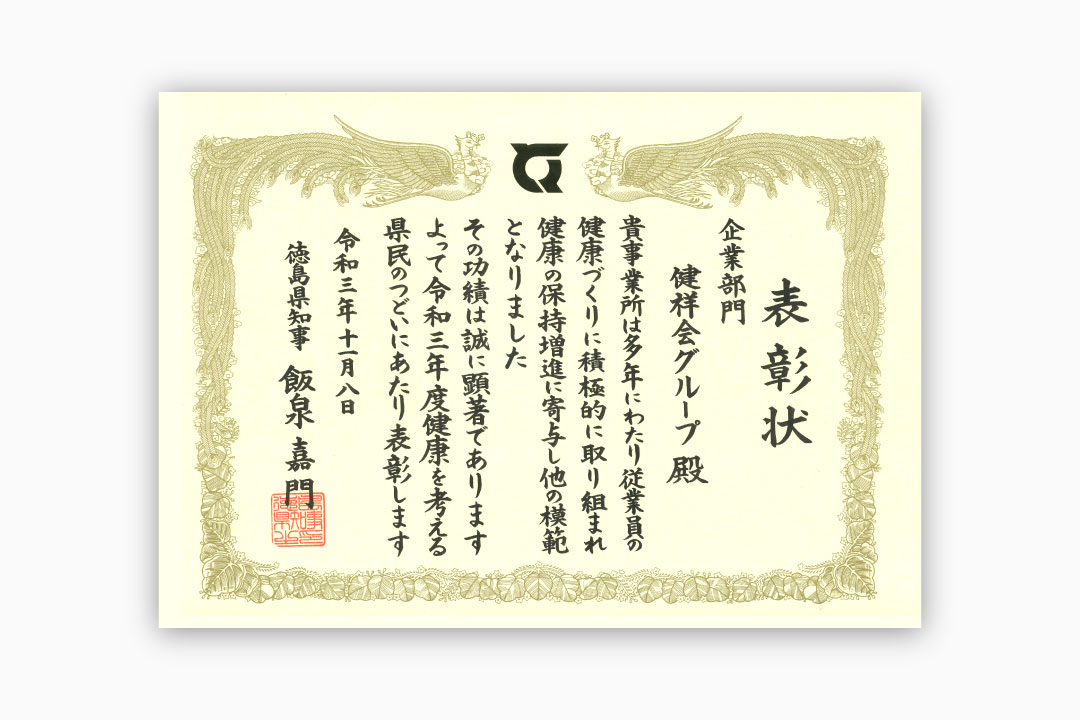 表彰状
企業部門
健祥会グループ 殿
貴事業所は多年にわたり従業員の
健康づくりに積極的に取り組まれ
健康の保持増進に寄与し他の模範
となりました
その功績は誠に顕著であります
よって令和三年度健康を考える
県民のつどいにあたり表彰します
令和三年十一月八日
徳島県知事 飯泉嘉門